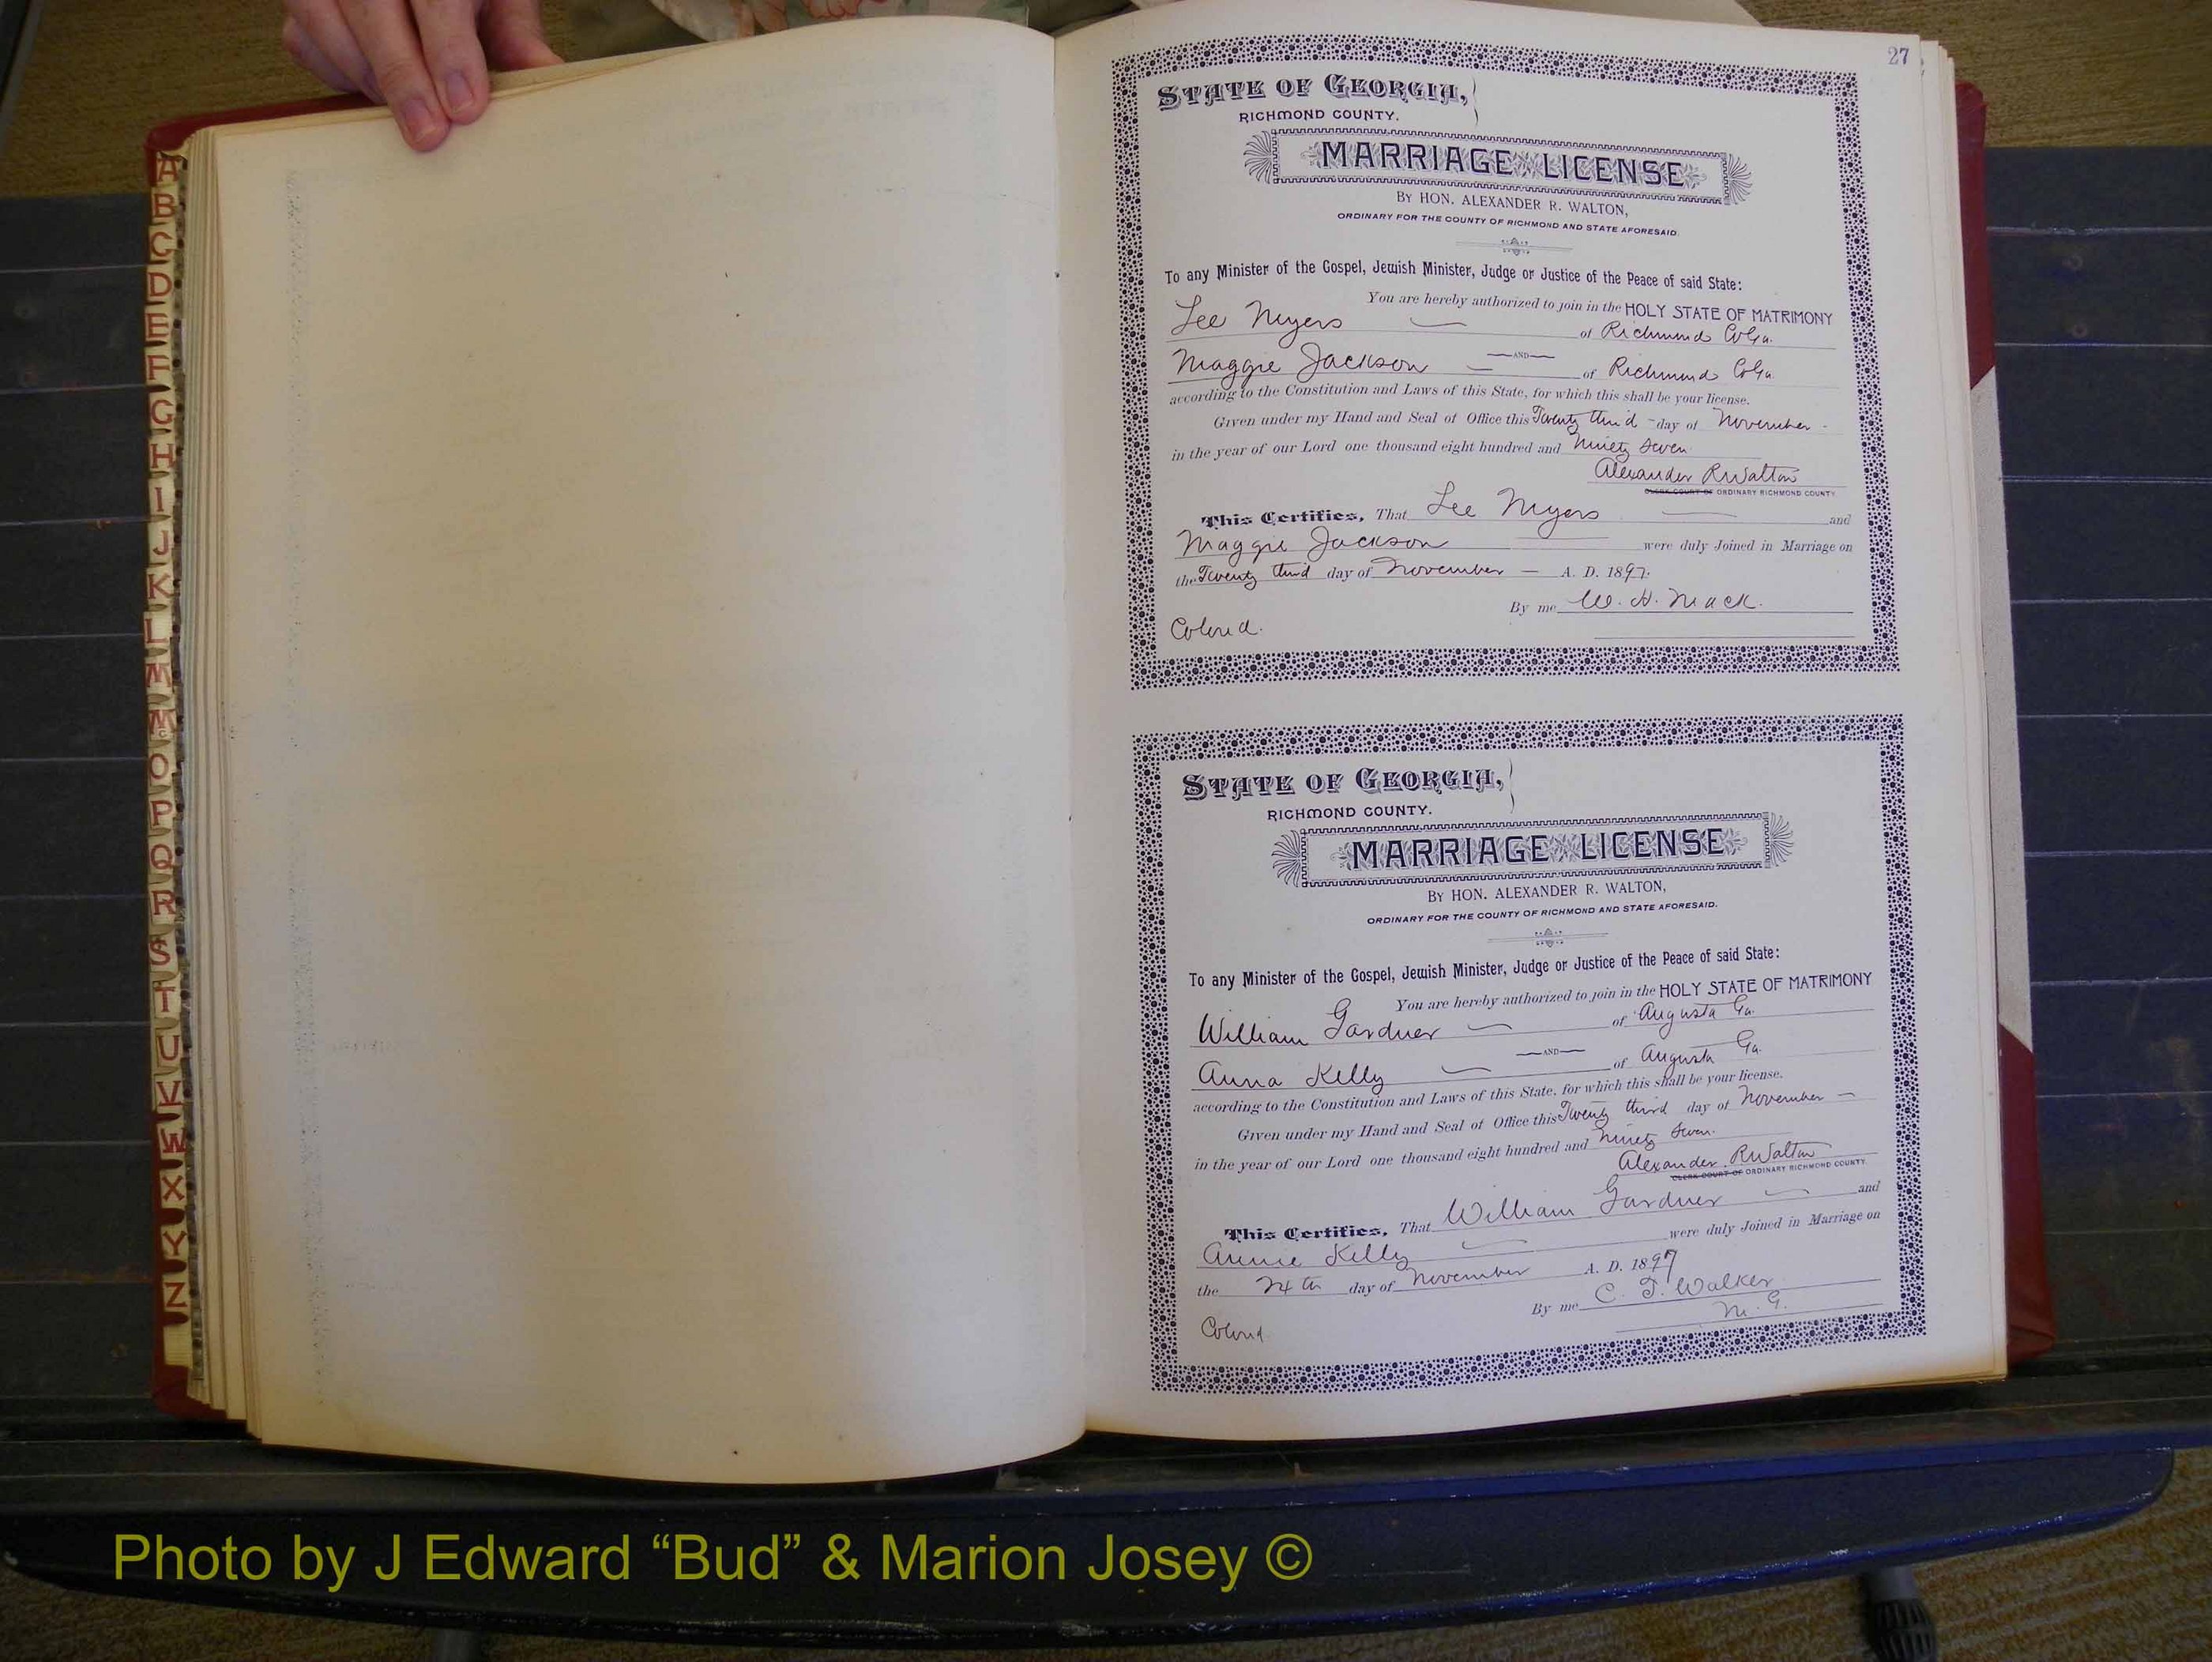 A
B
C
D
E
F
G
H
I
J
K
L
M
Mc
O
P
Q
R
S
T
U
V
W
X
Y
Z
27
STATE OF GEORGIA,
RICHMOND COUNTY.
MARRIAGE LICENSE
BY HON. ALEXANDER R. WALTON,
ORDINARY FOR THE COUNTY OF RICHMOND AND STATE AFORESAID.
To any Minister of the Gospel, Jewish Minister, Judge or Justice of the Peace of said State:
You are hereby authorized to join in the HOLY STATE OF MATRIMONY
Lee Myers of Richmond Co Ga.
AND
Maggie Jackson of Richmond Co Ga
according to the Constitution and Laws of this State, for which this shall be your license.
Given under my Hand and Seal of Office this Twenty third day of November
in the year of our Lord one thousand eight hundred and Ninety Seven
Alexander R Walton
CLERK COURT OF ORDINARY RICHMOND COUNTY
This Certifies, That Lee Myers and
Maggie Jackson were duly Joined in Marriage on
the Twenty third day of November A. D. 1897.
By me W. H. Mack.
Colored.
STATE OF GEORGIA,
RICHMOND COUNTY.
MARRIAGE LICENSE
BY HON. ALEXANDER R. WALTON,
ORDINARY FOR THE COUNTY OF RICHMOND AND STATE AFORESAID.
To any Minister of the Gospel, Jewish Minister, Judge or Justice of the Peace of said State:
You are hereby authorized to join in the HOLY STATE OF MATRIMONY
William Gardner of Augusta Ga.
AND
Anna Kelly of Augusta Ga.
according to the Constitution and Laws of this State, for which this shall be your license.
Given under my Hand and Seal of Office this Twenty third day of November
in the year of our Lord one thousand eight hundred and Ninety Seven.
Alexander R Walton
CLERK COURT OF ORDINARY RICHMOND COUNTY.
This Certifies, That William Gardner and
Annie Kelly were duly Joined in Marriage on
the 24th day of November A. D. 1897
By me C. T. Walker
M. G.
Colored
Photo by J Edward “Bud” & Marion Josey ©